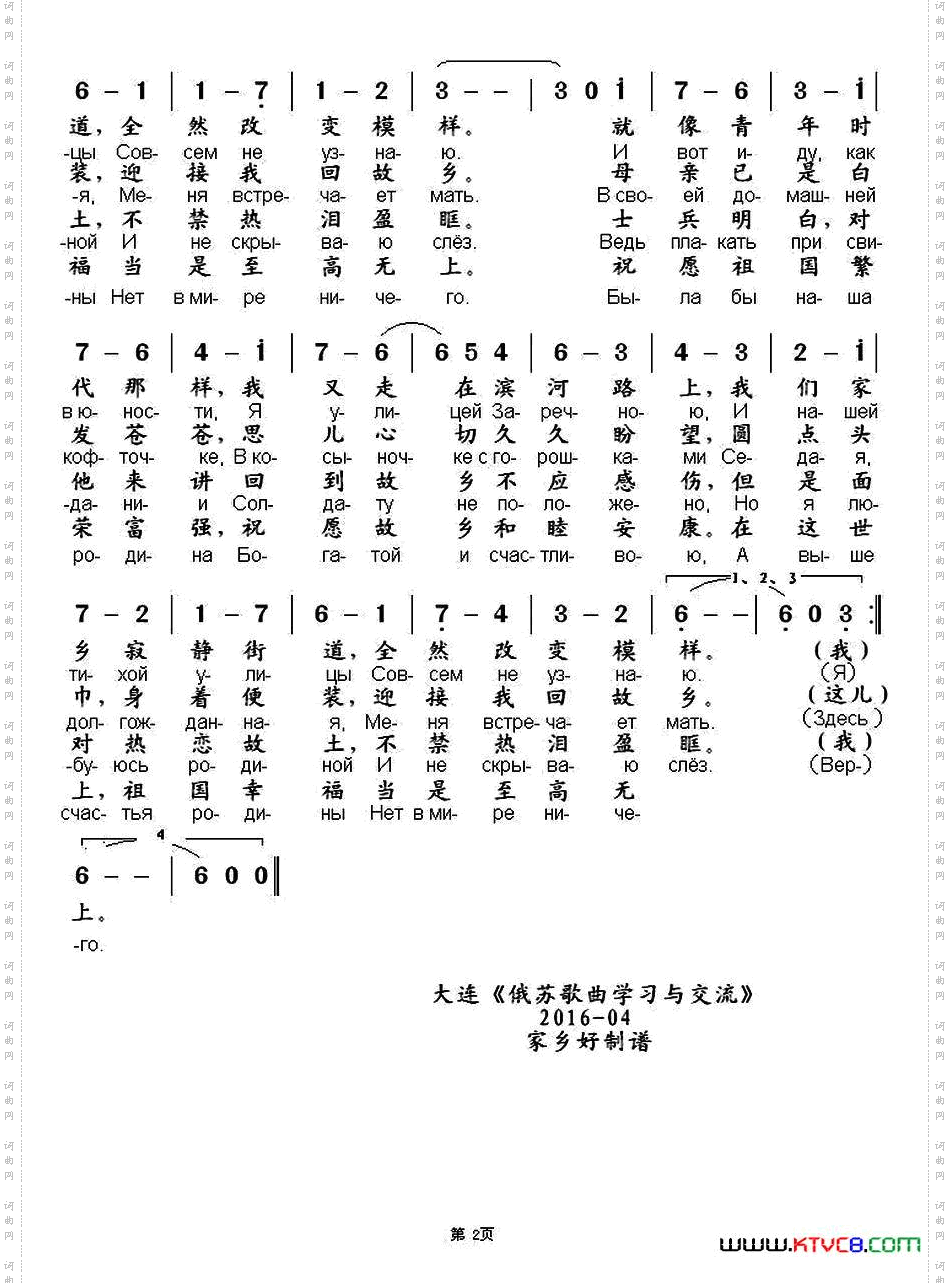 6 – 1 | 1 – 7̣ | 1 – 2 | 3 – – | 3 0 i | 7 – 6 | 3 – i |
道，全 然 改 变 模 样。 就 像 青 年 时
-цы Сов- сем не уз- на- ю. И вот и- ду, как
装，迎 接 我 回 故 乡。 母 亲 已 是 白
-я, Ме- ня встре- ча- ет мать. В сво- ей до- маш- ней
土，不 禁 热 泪 盈 眶。 士 兵 明 白，对
-ной И не скры- ва- ю слёз. Ведь пла- кать при сви-
福 当 是 至 高 无 上。 祝 愿 祖 国 繁
-ны Нет в ми- ре ни- че- го. Бы- ла бы на- ша
7 – 6 | 4 – i | 7 – 6 | 6 5 4 | 6 – 3 | 4 – 3 | 2 – i |
代 那 样，我 又 走 在 滨 河 路 上，我 们 家
в ю- нос- ти, Я у- ли- цей За- реч- но- ю, И на- шей
发 苍 苍，思 儿 心 切 久 久 盼 望，圆 点 头
коф- точ- ке, В ко- сы- ноч- ке с го- рош- ка- ми Се- да- я,
他 来 讲 回 到 故 乡 不 应 感 伤，但 是 面
-да- ни- и Сол- да- ту не по- ло- же- но, Но я лю-
荣 富 强，祝 愿 故 乡 和 睦 安 康。在 这 世
ро- ди- на Бо- га- той и счас- тли- во- ю, А вы- ше
1、2、3
7 – 2 | 1 – 7 | 6 – 1 | 7̣ – 4 | 3 – 2 | 6̣ – – | 6̣ 0 3̣ :‖
乡 寂 静 街 道，全 然 改 变 模 样。 (我)
ти- хой у- ли- цы Сов- сем не уз- на- ю. (Я)
巾，身 着 便 装，迎 接 我 回 故 乡。 (这儿)
дол- гож- дан- на- я, Ме- ня встре- ча- ет мать. (Здесь)
对 热 恋 故 土，不 禁 热 泪 盈 眶。 (我)
-бу- юсь ро- ди- ной И не скры- ва- ю слёз. (Вер-)
上，祖 国 幸 福 当 是 至 高 无
счас- тья ро- ди- ны Нет в ми- ре ни- че-
4
6 – – | 6 0 0 ‖
上。
-го.
大连《俄苏歌曲学习与交流》
2016-04
家乡好制谱
第 2页
www.KTVC8.com